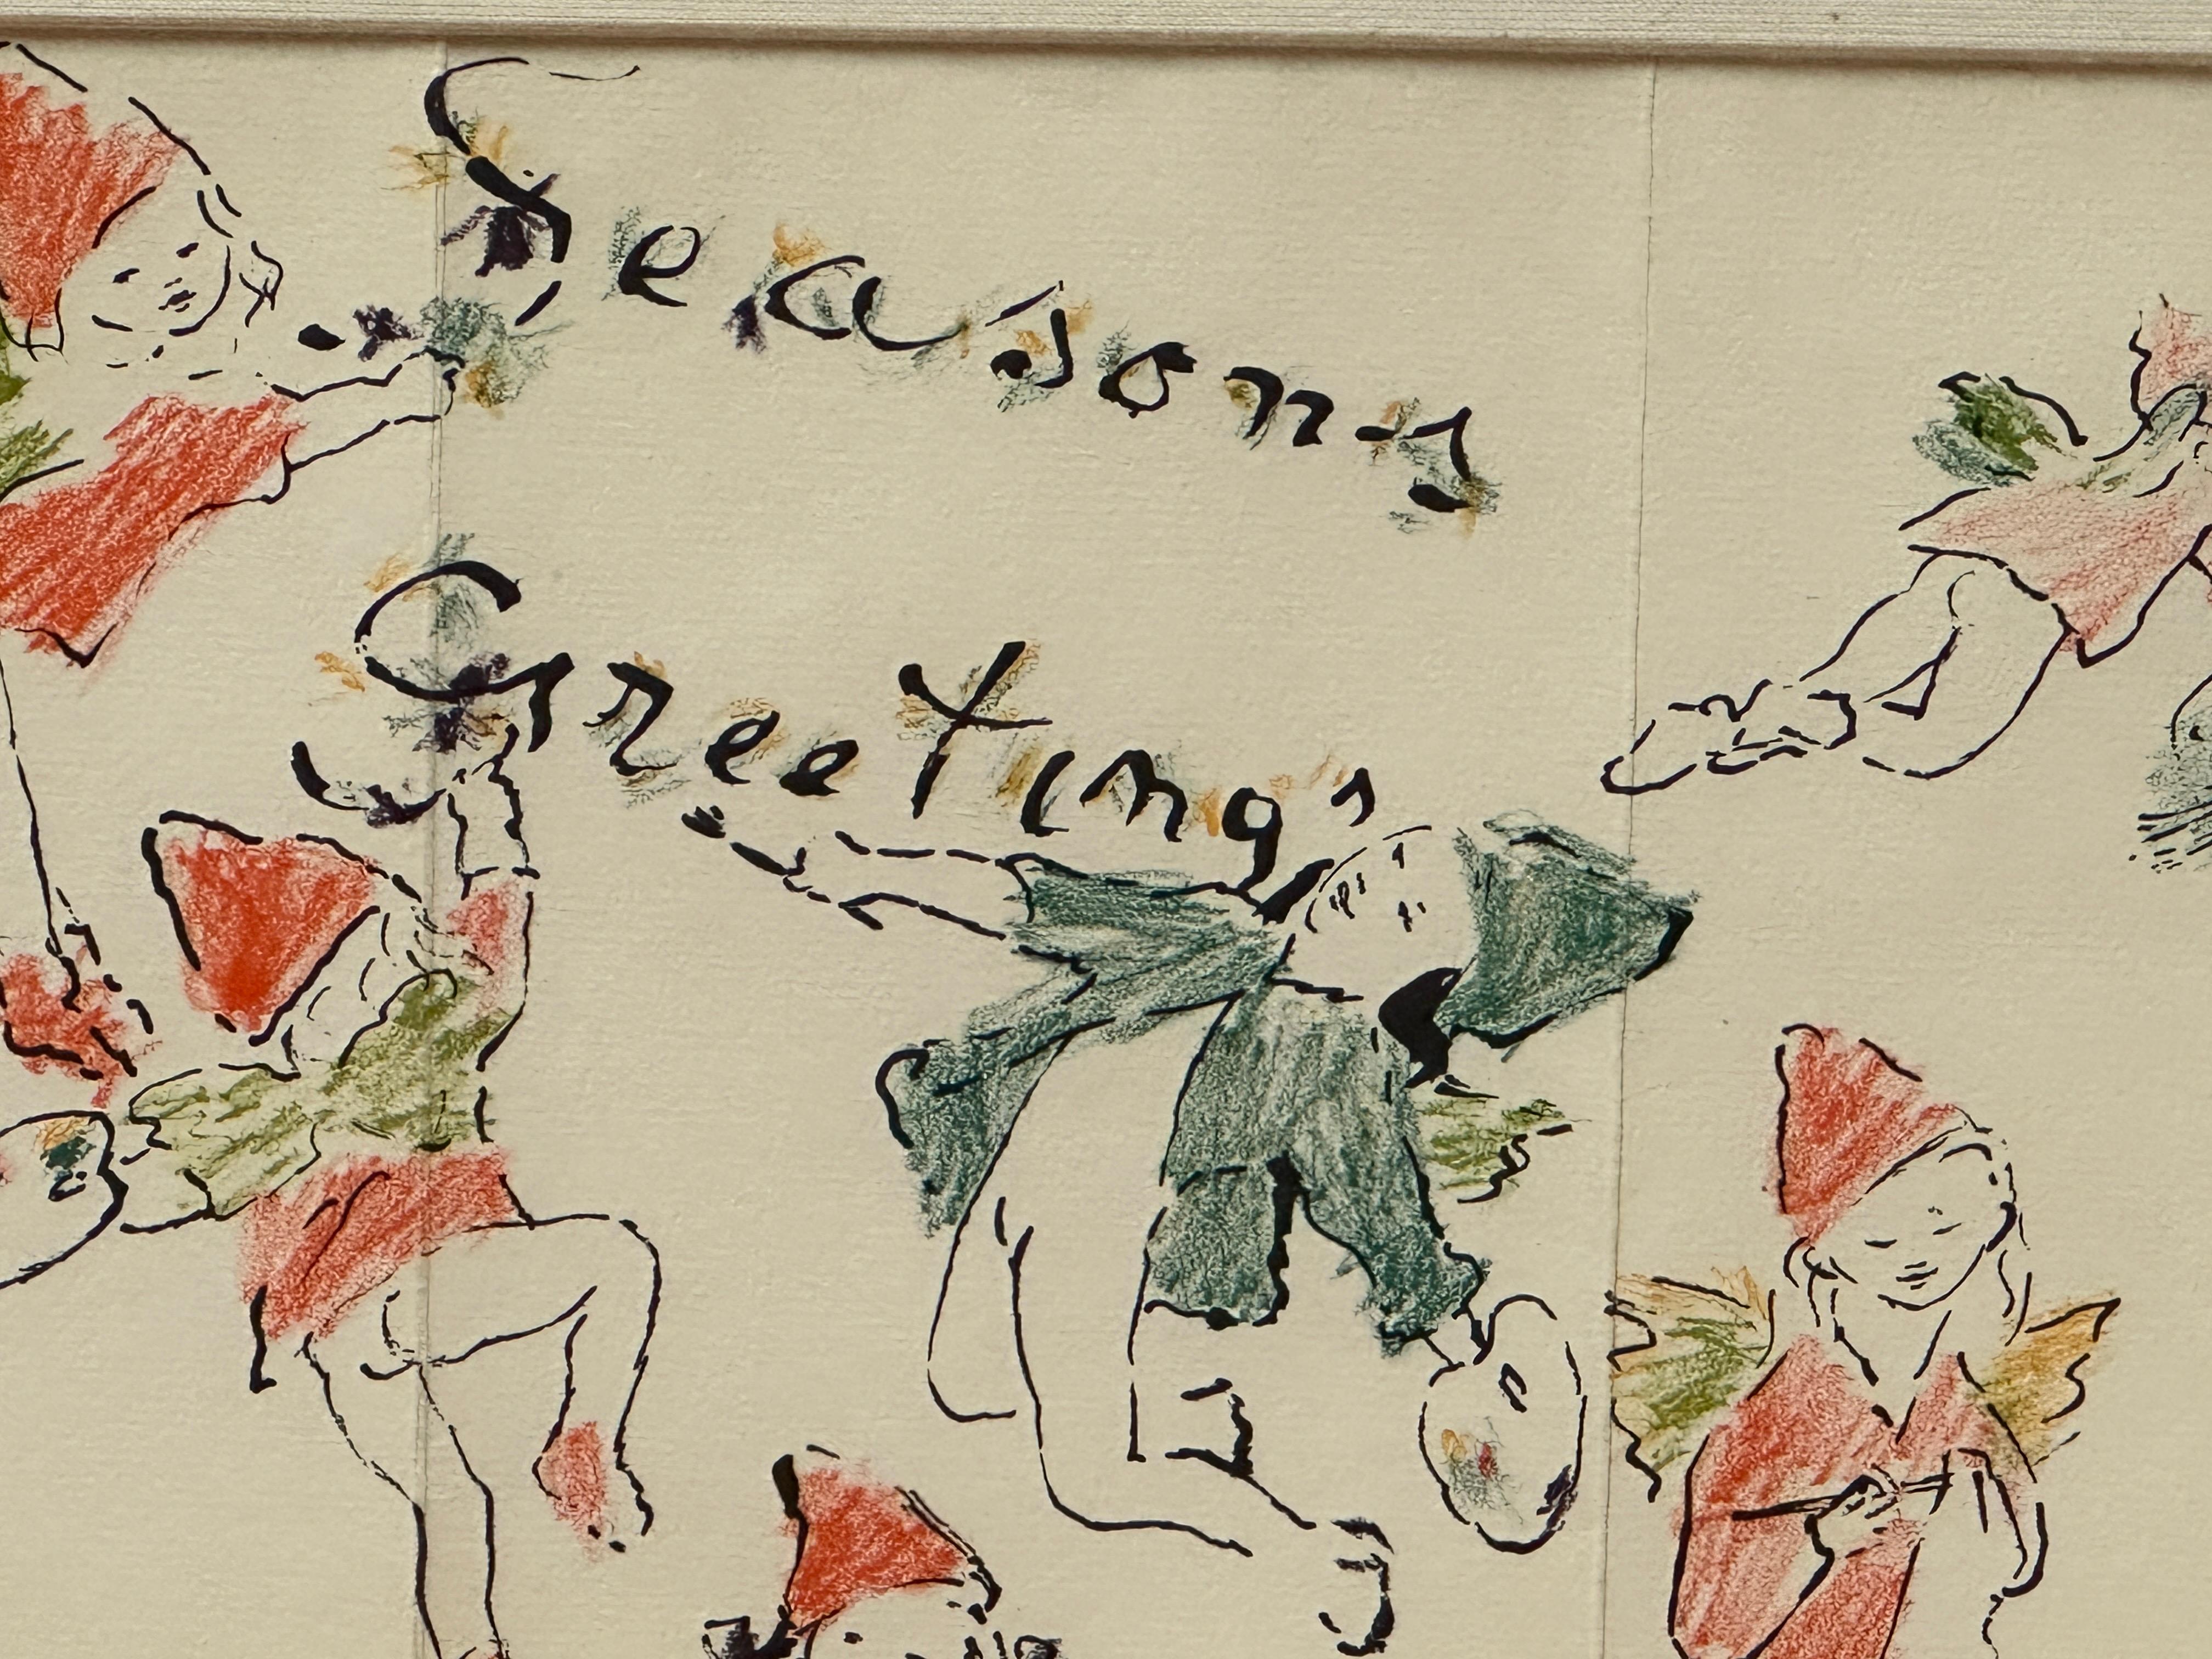 Seasons
Greetings